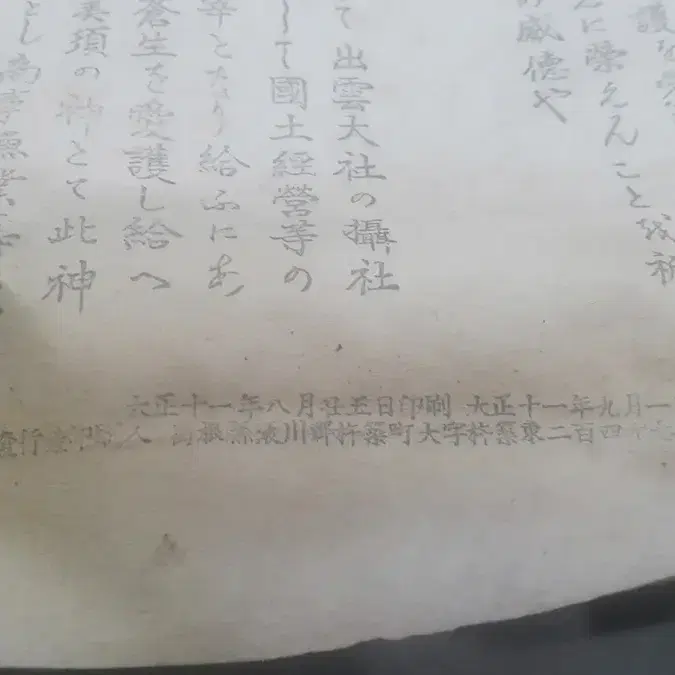 護な
に榮えんことを祈
威徳や
て出雲大社の攝社
して國土經營等の
宰となり給ふにあ
蒼生を愛護し給へ
美須の神とて此神
とし
大正十一年八月廿五日印刷 大正十一年九月一
發行 人 島根縣簸川郡杵築町大字杵築東二百四十